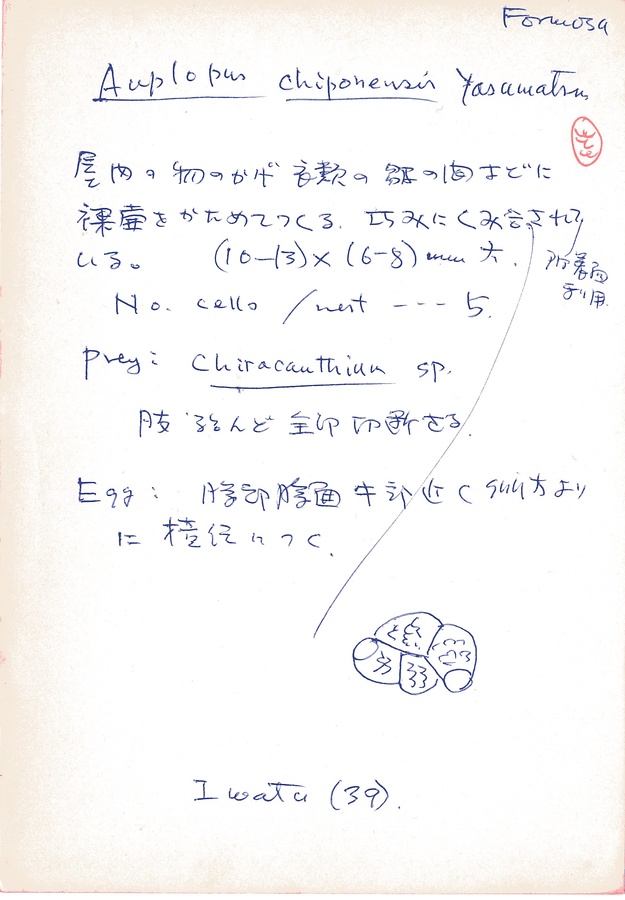 Formosa
Auplopus chiponensis Yasumatsu
屋内の物のかげ 衣類の皺の間などに
裸壷をかためてつくる. 巧みにくみ合されて
いる。 (10-13)×(6-8) mm 大.
附着面
利用.
No. cells / nest --- 5.
Prey: Chiracanthium sp.
肢 殆んど 全部 切断さる.
Egg: 腹部 近く 方より
に 横径につく.
Iwata (39).